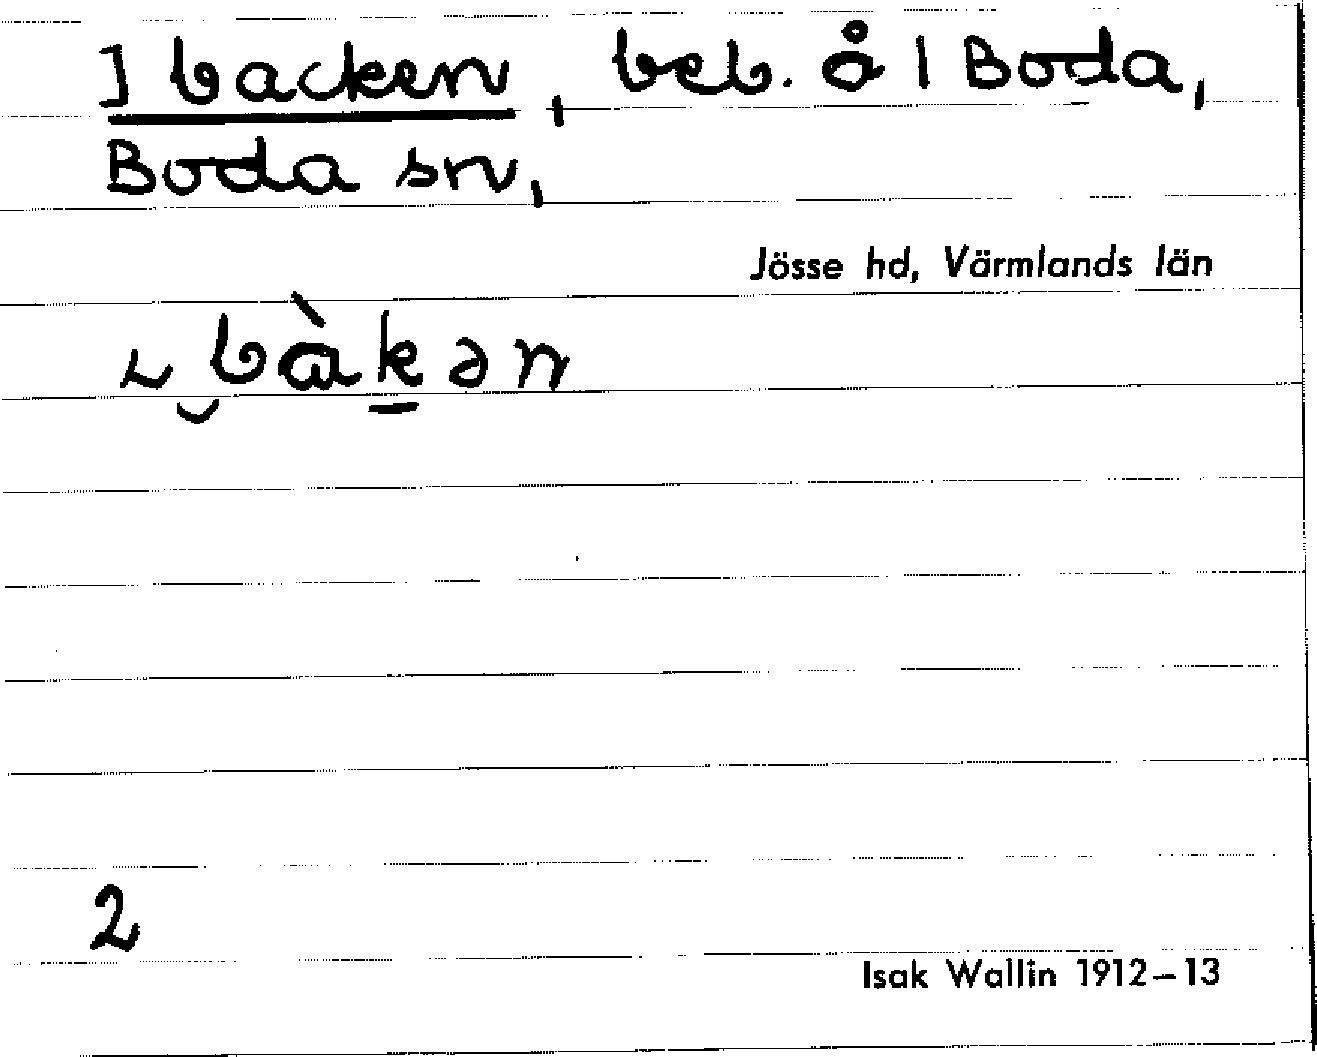 I backen, beb. å 1 Boda,
Boda sn,
Jösse hd, Värmlands län
ɩ‿bàk̠ən
2
Isak Wallin 1912–13